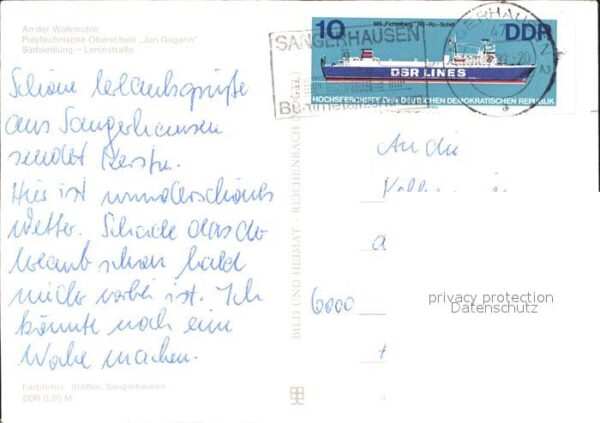 An der Walkmühle
Polytechnische Oberschule „Juri Gagarin“
Südsiedlung – Leninstraße
Schöne Urlaubsgrüße
aus Sangerhausen
sendet Kerstin.
Hier ist wunderschönes
Wetter. Schade dass der
Urlaub schon bald
wieder vorbei ist. Ich
könnte noch eine
Woche machen.
Farbfotos: Steffen, Sangerhausen
DDR 0,20 M
BILD UND HEIMAT · REICHENBACH
10
MS „Fichtelberg“ Ro-Ro-Schiff
DDR
DSR LINES
HOCHSEESCHIFFE DER DEUTSCHEN DEMOKRATISCHEN REPUBLIK
SANGERHAUSEN
An die
6000
privacy protection
Datenschutz